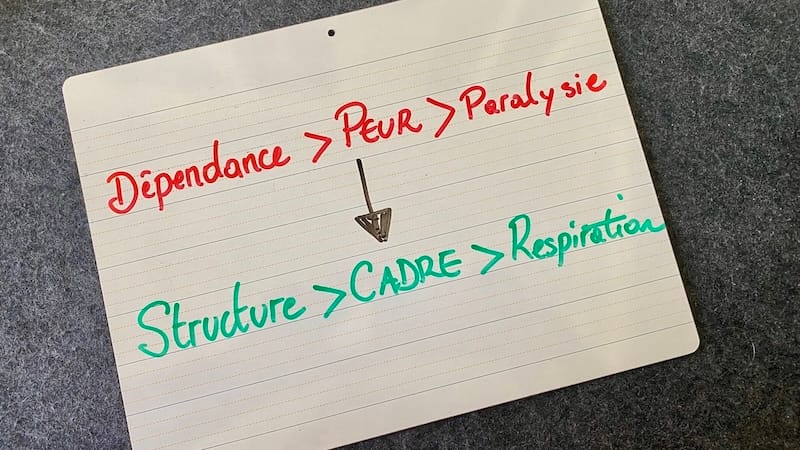 Dépendance > PEUR > Paralysie
Structure > CADRE > Respiration